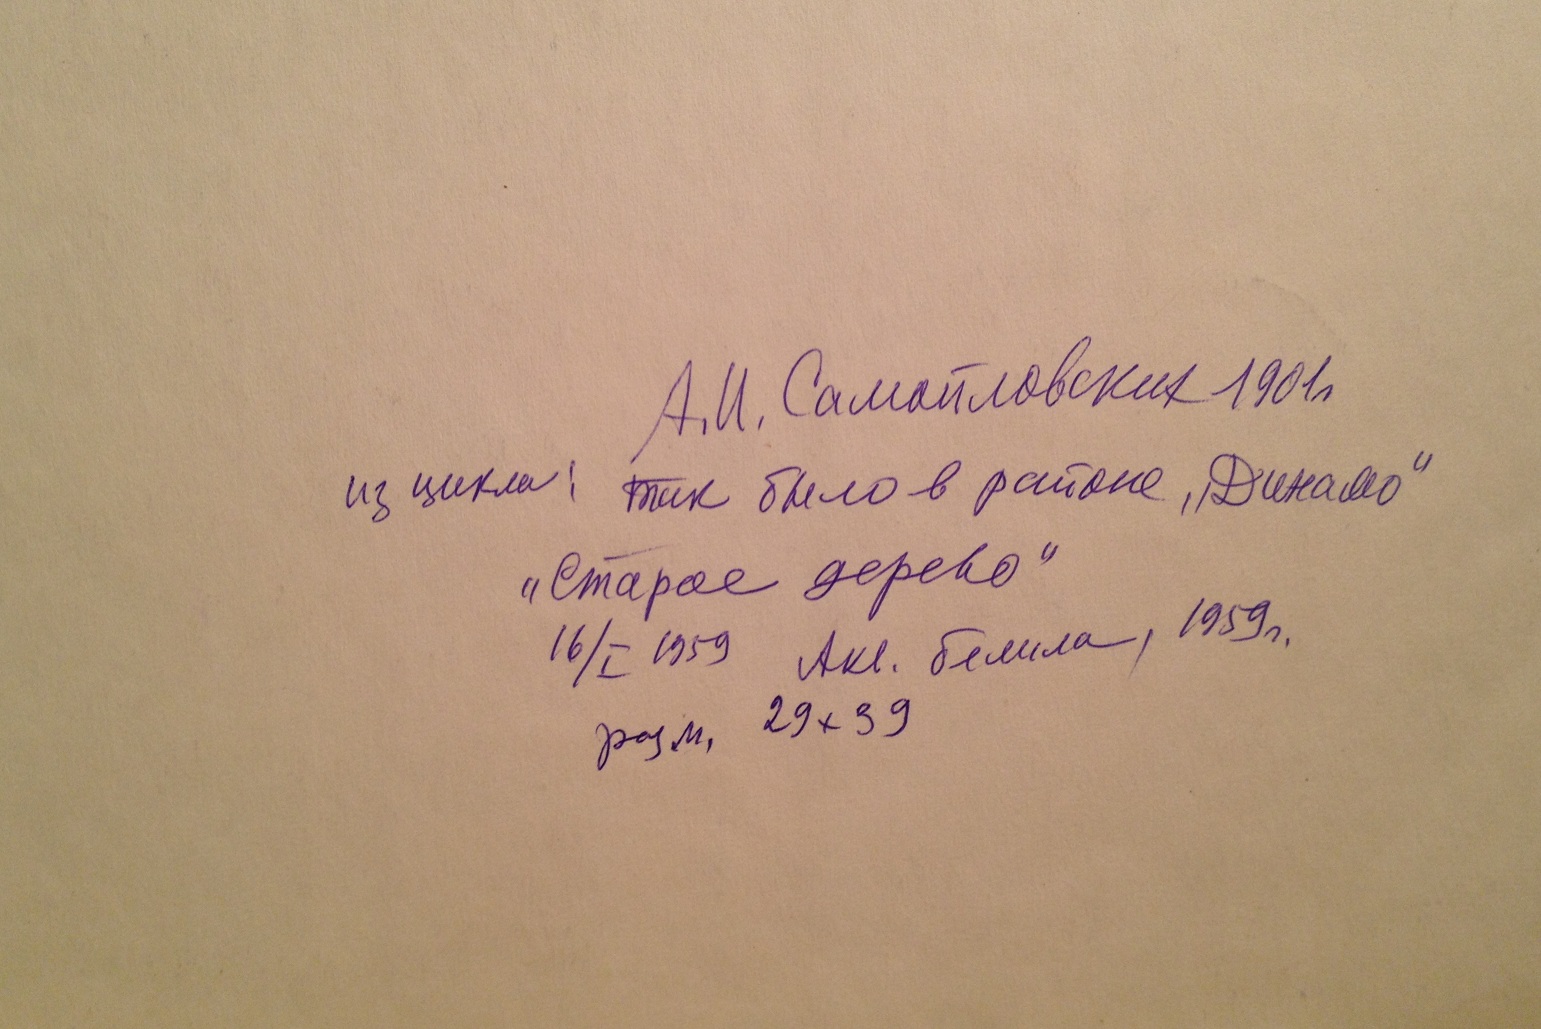 А.И. Самойловских 1901г
из цикла: так было в районе „Динамо"
„Старое дерево"
16/I 1959 Акв. белила, 1959г.
разм. 29х39